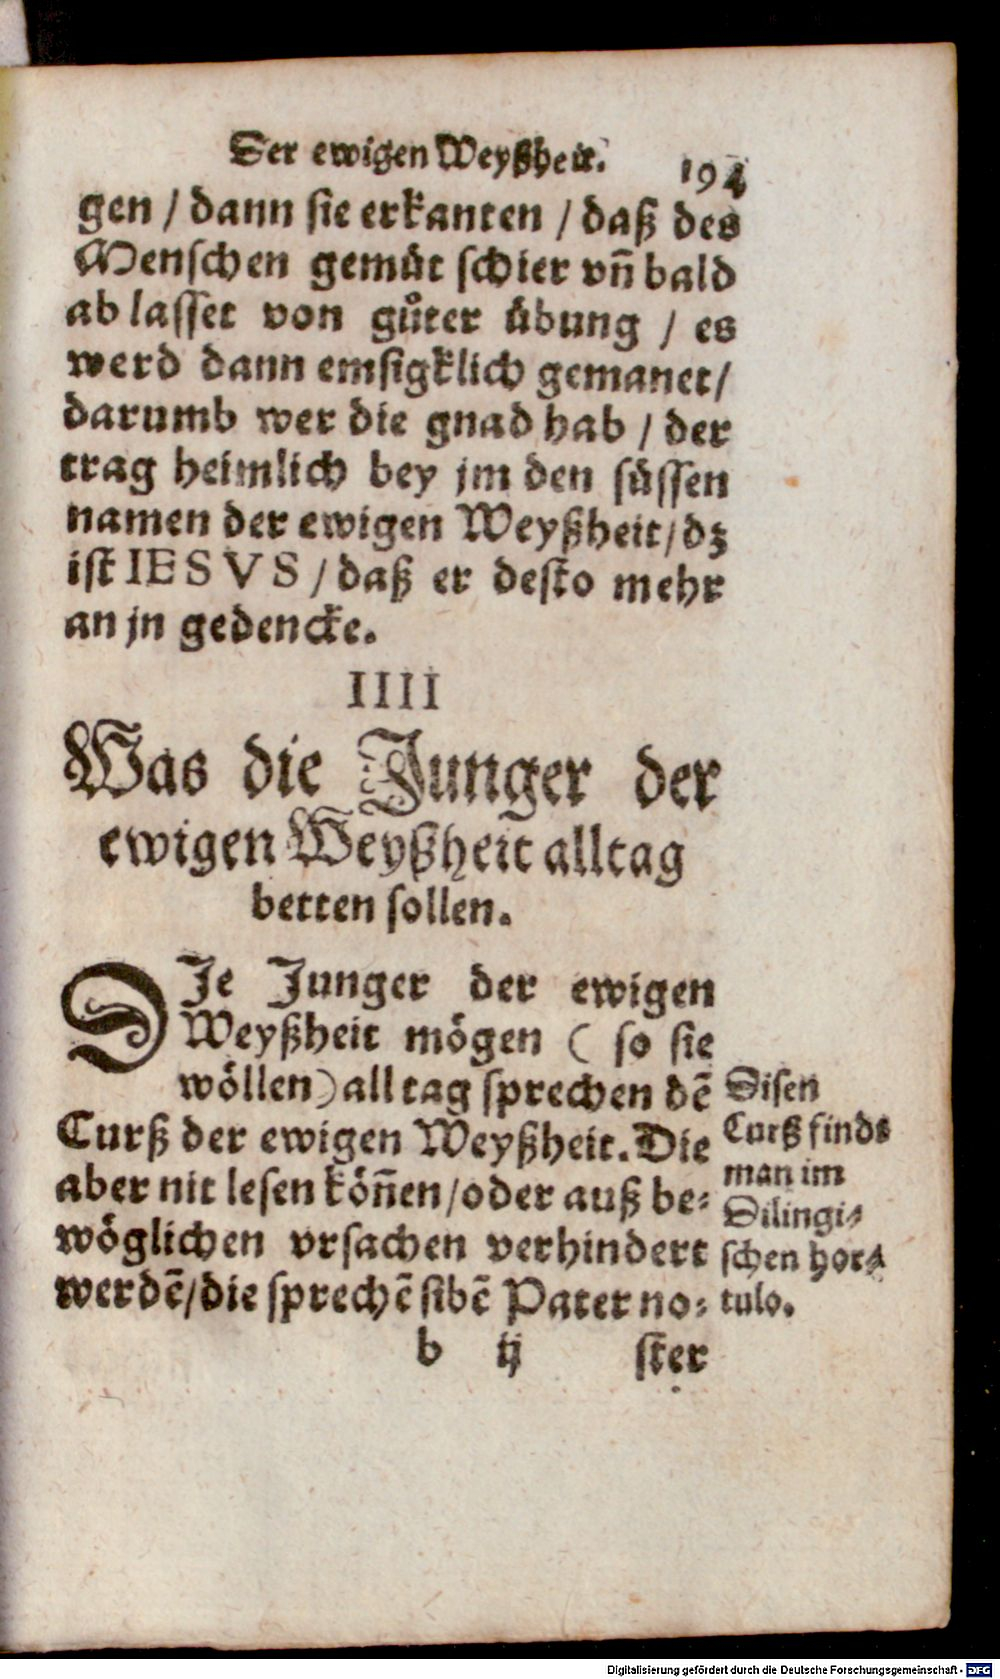 Der ewigen Weyßheit. 194
gen / dann sie erkanten / daß des
Menschen gemüt schier vn̄ bald
ab lasset von gůter übung / es
werd dann emsigklich gemanet /
darumb wer die gnad hab / der
trag heimlich bey jm den süssen
namen der ewigen Weyßheit / dz
ist IESVS / daß er desto mehr
an jn gedencke.
IIII
Was die Junger der
ewigen Weyßheit alltag
betten sollen.
DJe Junger der ewigen
Weyßheit mögen ( so sie
wöllen) all tag sprechen dē
Curß der ewigen Weyßheit. Die
aber nit lesen kön̄en / oder auß be⸗
wöglichen vrsachen verhindert
werdē / die sprechē sibē Pater no⸗
Disen
Curß finds
man im
Dilingi⸗
schen hor⸗
tulo.
b ij ster
Digitalisierung gefördert durch die Deutsche Forschungsgemeinschaft - DFG